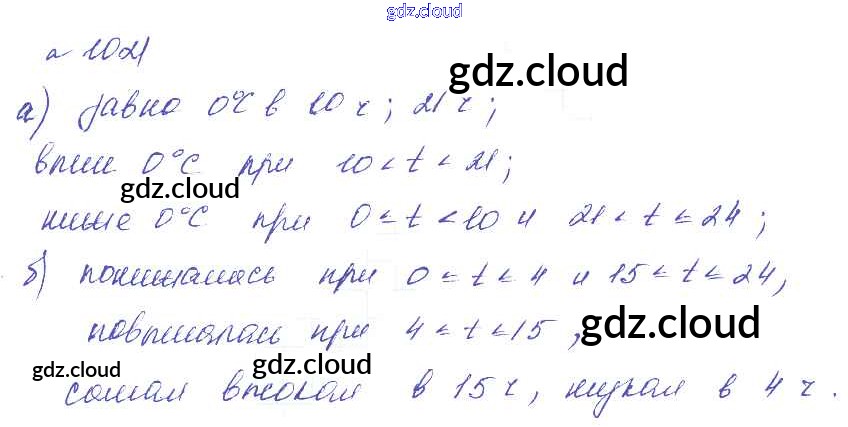 gdz.cloud
№ 1021
gdz.cloud
а) равно 0°С в 10 ч; 21 ч;
выше 0°С при 10 < t < 21;
gdz.cloud
ниже 0°С при 0 ≤ t < 10 и 21 < t ≤ 24;
б) понижалась при 0 ≤ t < 4 и 15 < t ≤ 24,
повышалась при 4 < t < 15,
gdz.cloud
gdz.cloud
gdz.cloud
самая высокая в 15 ч, низкая в 4 ч.